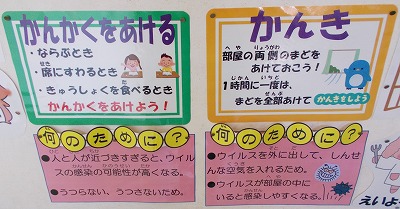 かんかくをあける
・ならぶとき
・席にすわるとき
・きゅうしょくを食べるとき
かんかくをあけよう！
何のために？
●人と人が近づきすぎると、ウイル
スの感染の可能性が高くなる。
●うつらない、うつさないため。
かんき
部屋の両側のまどを
あけておこう！
1時間に一度は、
まどを全部あけて
かんきをしよう
何のために？
●ウイルスを外に出して、しんせ
んな空気を入れるため。
●ウイルスが部屋の中に
いると感染しやすくなる。
えいよう